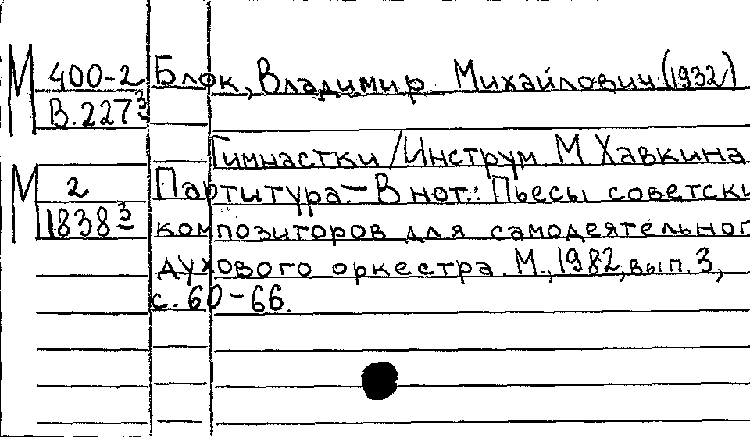 М 400-2 Блок, Владимир Михайлович (1932)
В.227³
Гимнастки / Инструм М Хавкина
М 2 Партитура. – В нот.: Пьесы советски
1838³ композиторов для самодеятельног
духового оркестра. М., 1982, вып. 3,
с. 60-66.